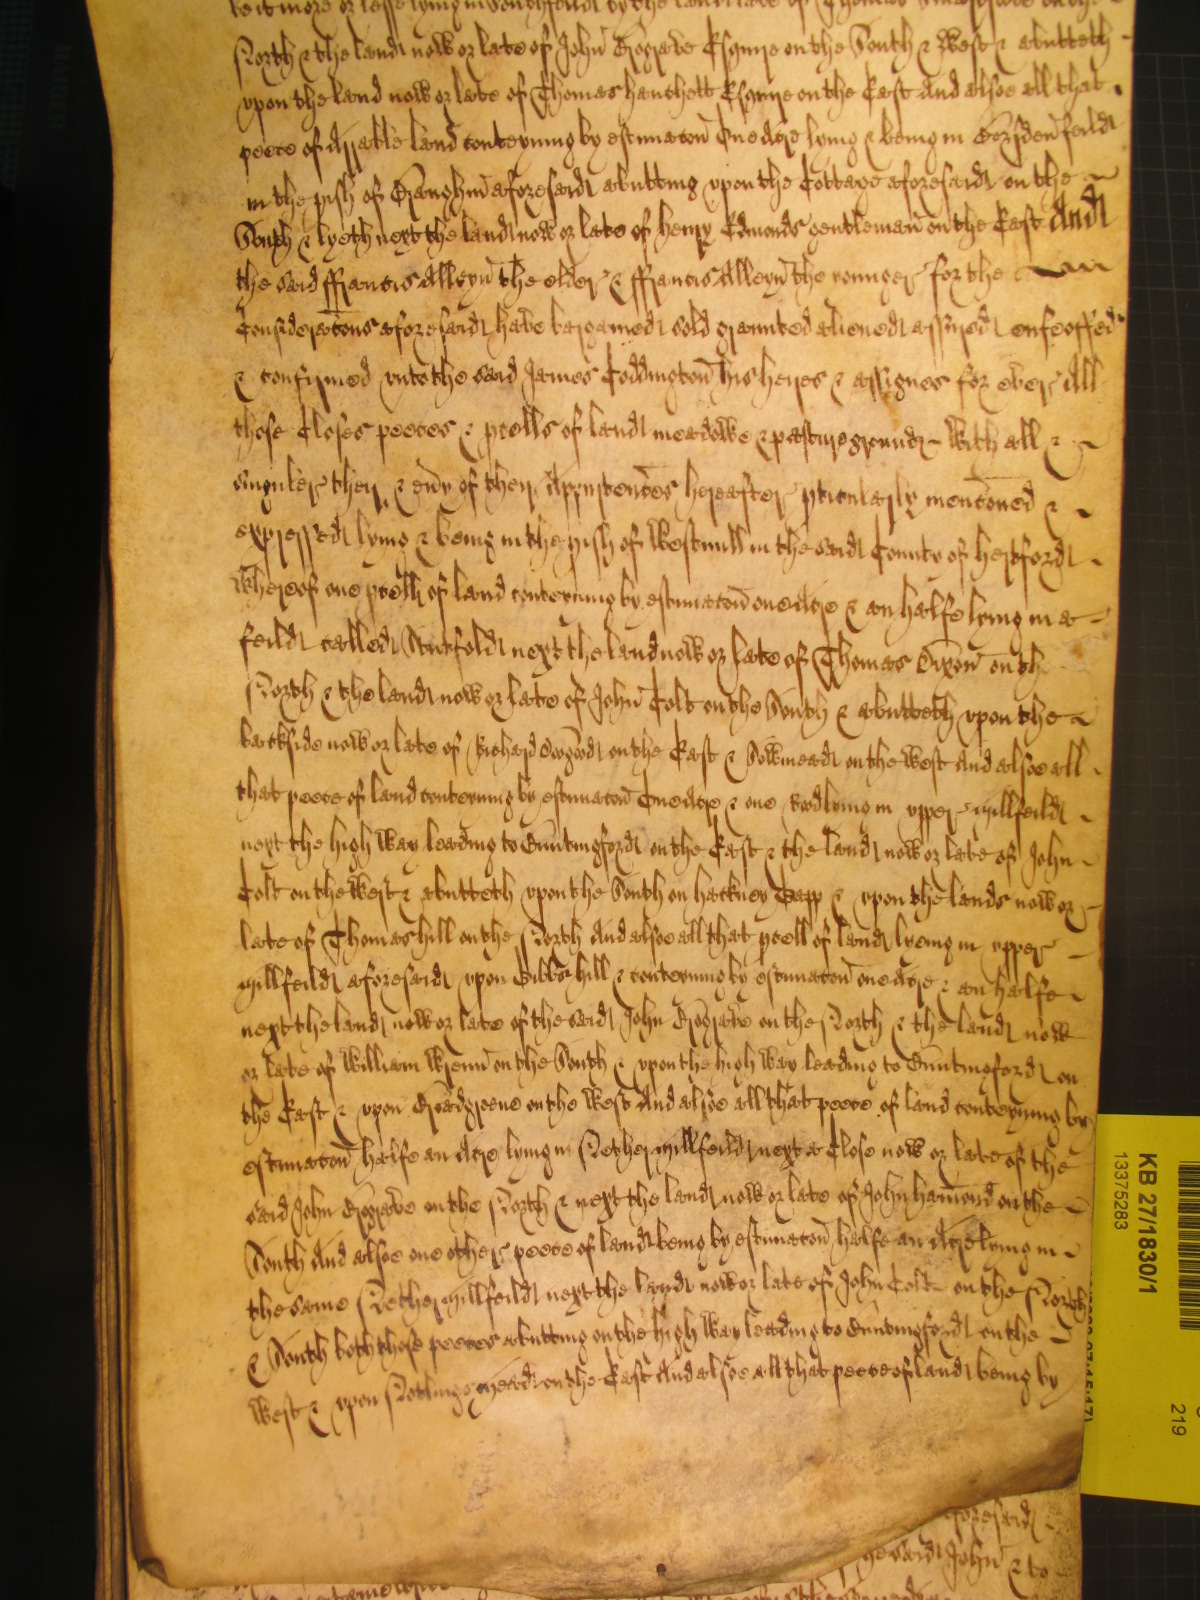 be it more or lesse lying in Southfeild by the land late of Thomas on the
North & the land now or late of John Brograve Esquire on the South & West & abutteth
upon the land now or late of Thomas hanchett Esquire on the East And alsoe all that
peece of Arrable land conteyning by estimacon One Acre lying & being in feild
in the pish of Braughin aforesaid abutting upon the Cottage aforesaid on the
South & lyeth next the land now or late of henry Edmonds gentleman on the East And
the said ffrancis Alleyn the elder & ffrancis Alleyn the younger for the
Consideracons aforesaid have bargained sold graunted aliened assured enfeoffed
& confirmed unto the said James Coddington his heyres & assignes for ever All
those Closes peeces & pcells of land meadowe & pasture ground With all &
singuler their & evy of their Appurtences hereafter pticularly menconed &
expressed lying & being in the pish of Westmill in the said County of hertford
Whereof one pcell of land conteyning by estimacon one Acre & an halfe lying in a
feild called next the land now or late of Thomas Dixon on th
North & the land now or late of John Colt on the South & abutteth upon the
backside now or late of Richard on the East & Sowmead on the West And alsoe all
that peece of land conteyning by estimacon One Acre & one Rod lying in upper Millfeild
next the high Way leading to Buntingford on the East & the land now or late of John
Colt on the West & abutteth upon the South on hackney Gapp & upon the lands now or
late of Thomas hill on the North And alsoe all that pcell of land lyeing in upper
Millfeild aforesaid upon Gibbs hill & conteyning by estimacon one Acre & an halfe
next the land now or late of the said John Brograve on the North & the land now
or late of William Wrenn on the South & upon the high Way leading to Buntingford on
the East & upon Broadgreene on the West And alsoe all that peece of land conteyning by
estimacon halfe an Acre lying in Nether Millfeild next a Close now or late of the
said John Brograve on the North & next the land now or late of John hamond on the
South And alsoe one other peece of land being by estimacon halfe an Acre lying in
the same Nether Millfeild next the land now or late of John Colt on the North
& South both those peeces abutting on the high Way leading to Buntingford on the
West & upon mead on the East And alsoe all that peece of land being by
aforesaid
the said John & to
KB 27/1830/1
13375283
219